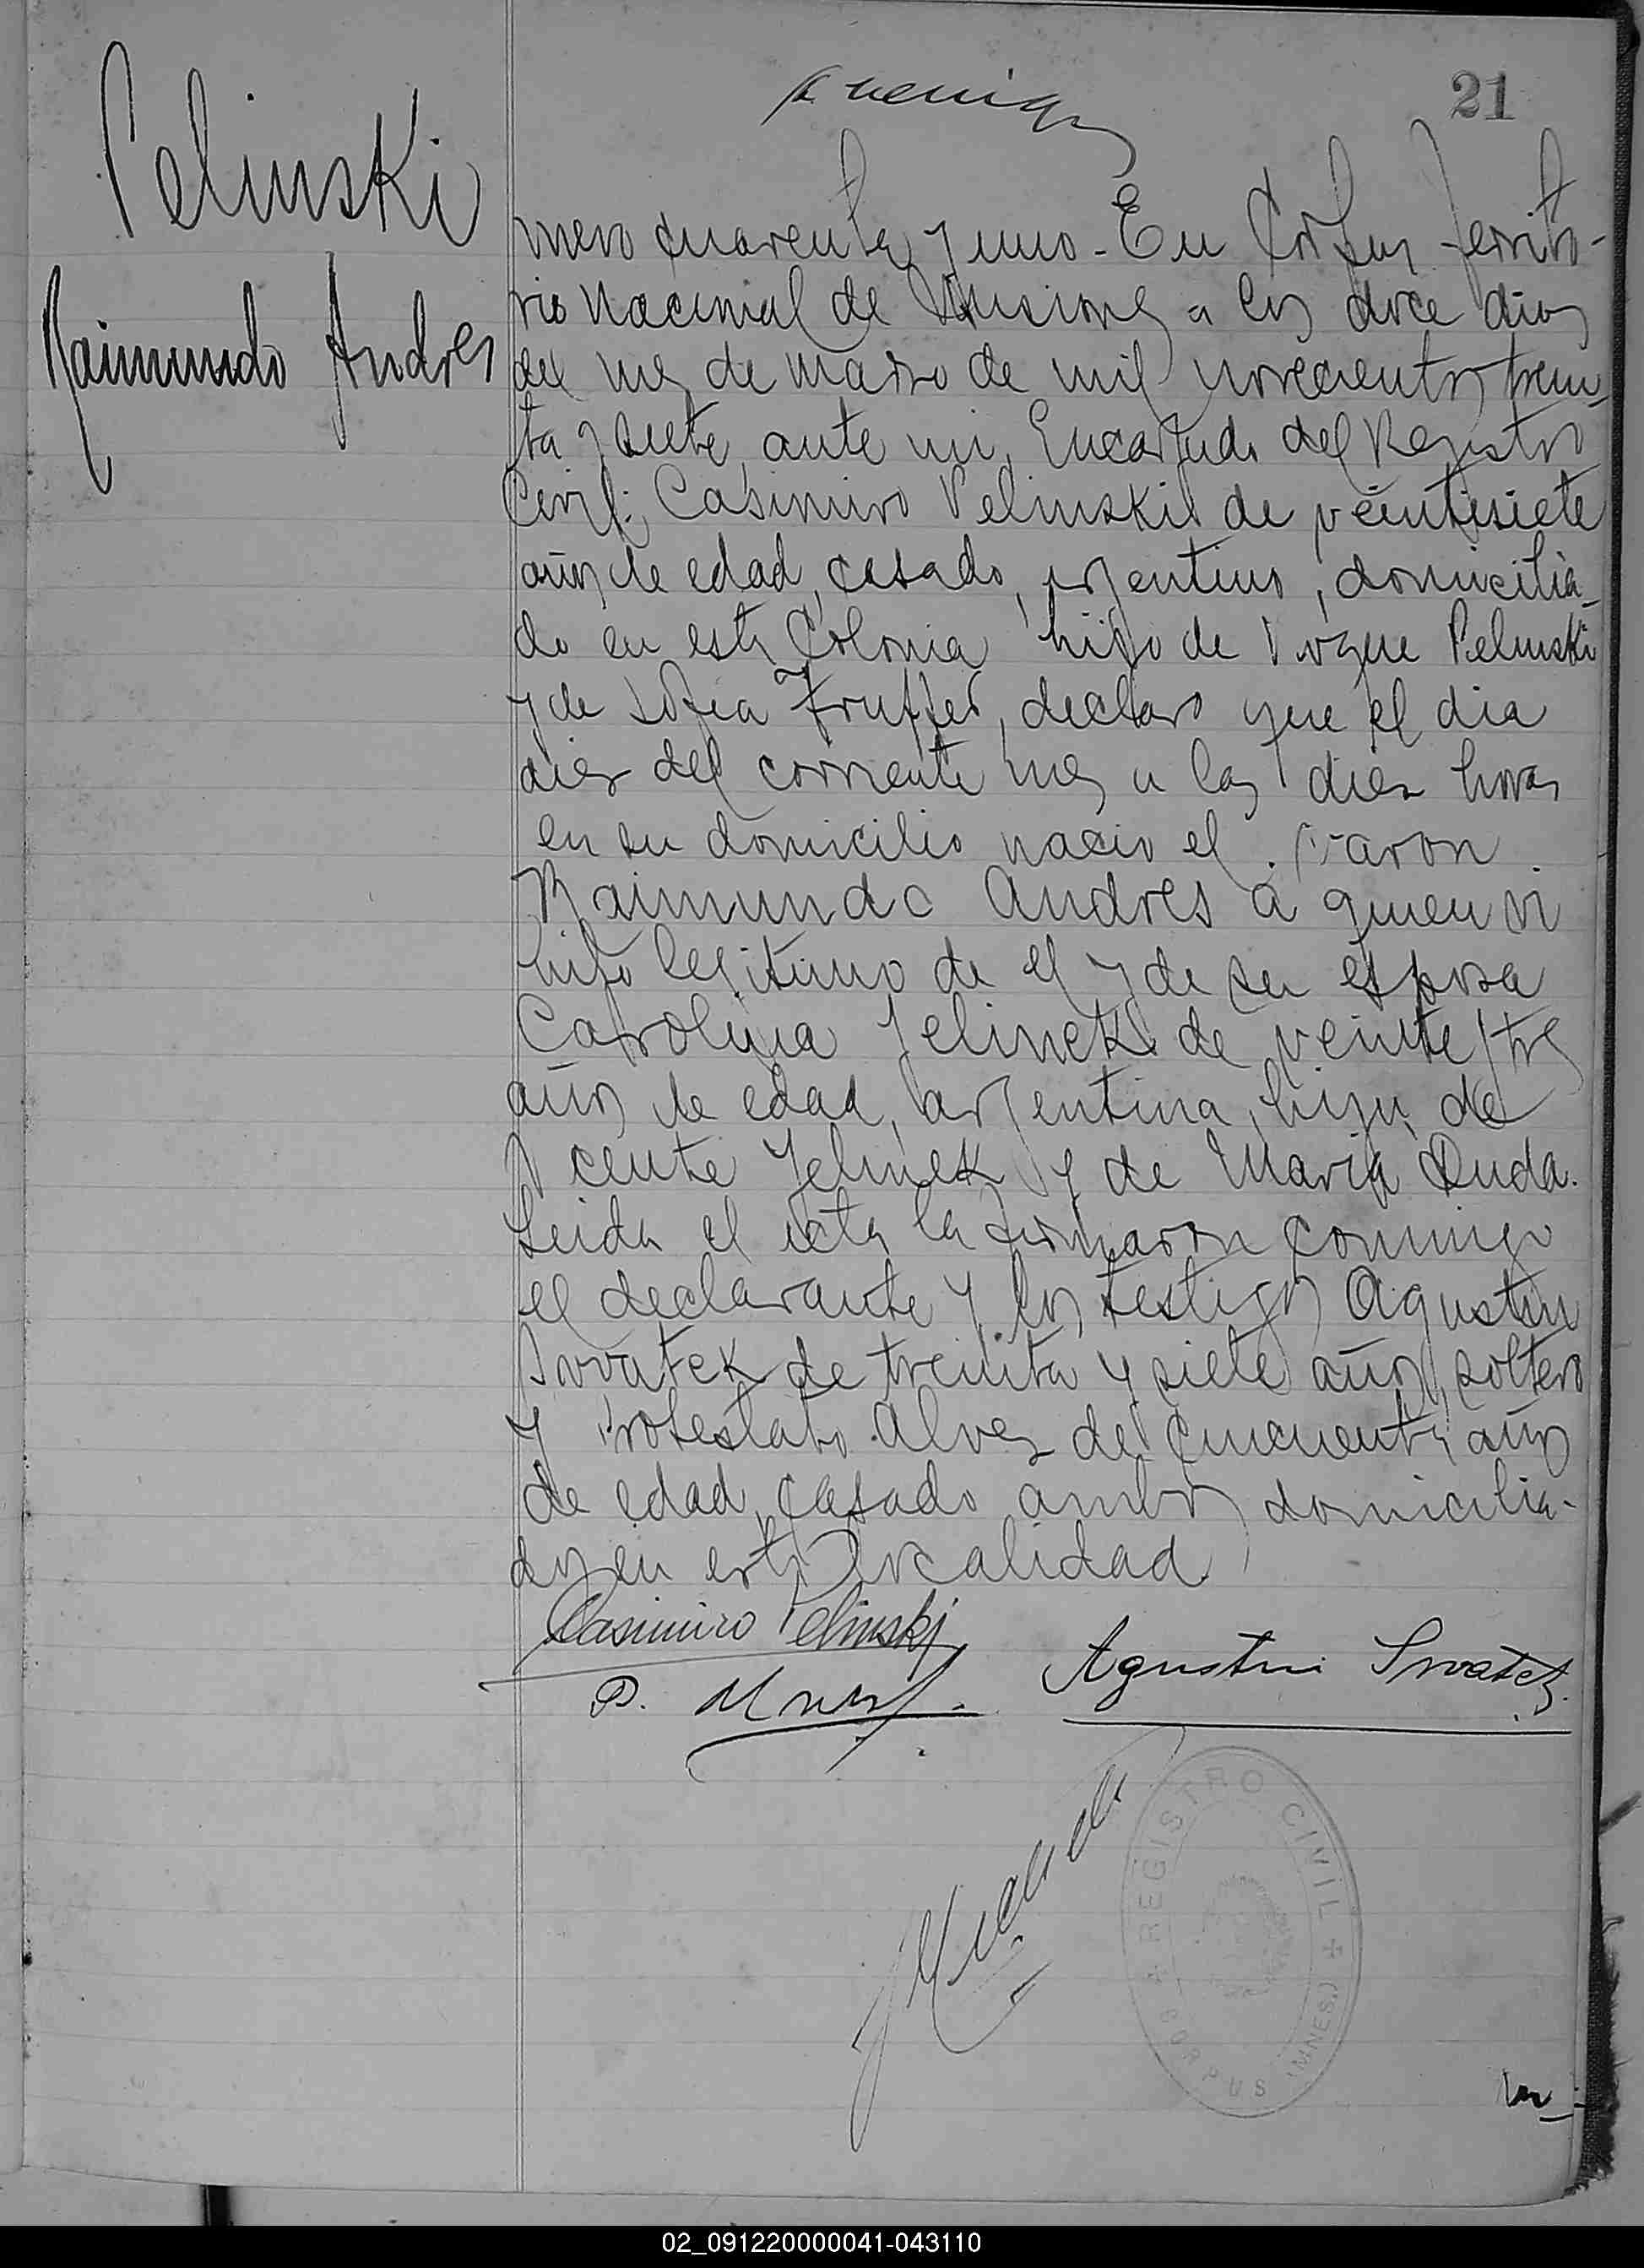 21
Pelinski
Raimundo Andres
mero cuarenta y uno - En Corpus Territo-
rio Nacional de Misiones a los doce dias
del mes de Marzo de mil novecientos trein-
ta y siete, ante mi, Encargado del Registro
Civil; Casimiro Pelinski de veintisiete
años de edad, casado, argentino, domicilia-
do en esta Colonia hijo de Roque Pelinski
y de Sofia, declaro que el dia
diez del corriente mes a las diez horas
en su domicilio nacio el varon
Raimundo Andres a quien vi
hijo legitimo de el y de su esposa
Carolina Jelinek de veinte y tres
años de edad, argentina, hija de
Vicente Jelinek y de Maria Duda.
Leida el acta la firmaron conmigo
el declarante y los testigos Agustin
Svvatek de treinta y siete años, soltero
y Protestato Alvez de cincuenta años
de edad, casado ambos domicilia-
dos en esta localidad
Casimiro Pelinski
P. Agustin Svvatek
REGISTRO CIVIL
CORPUS (MNES.)
02_091220000041-043110